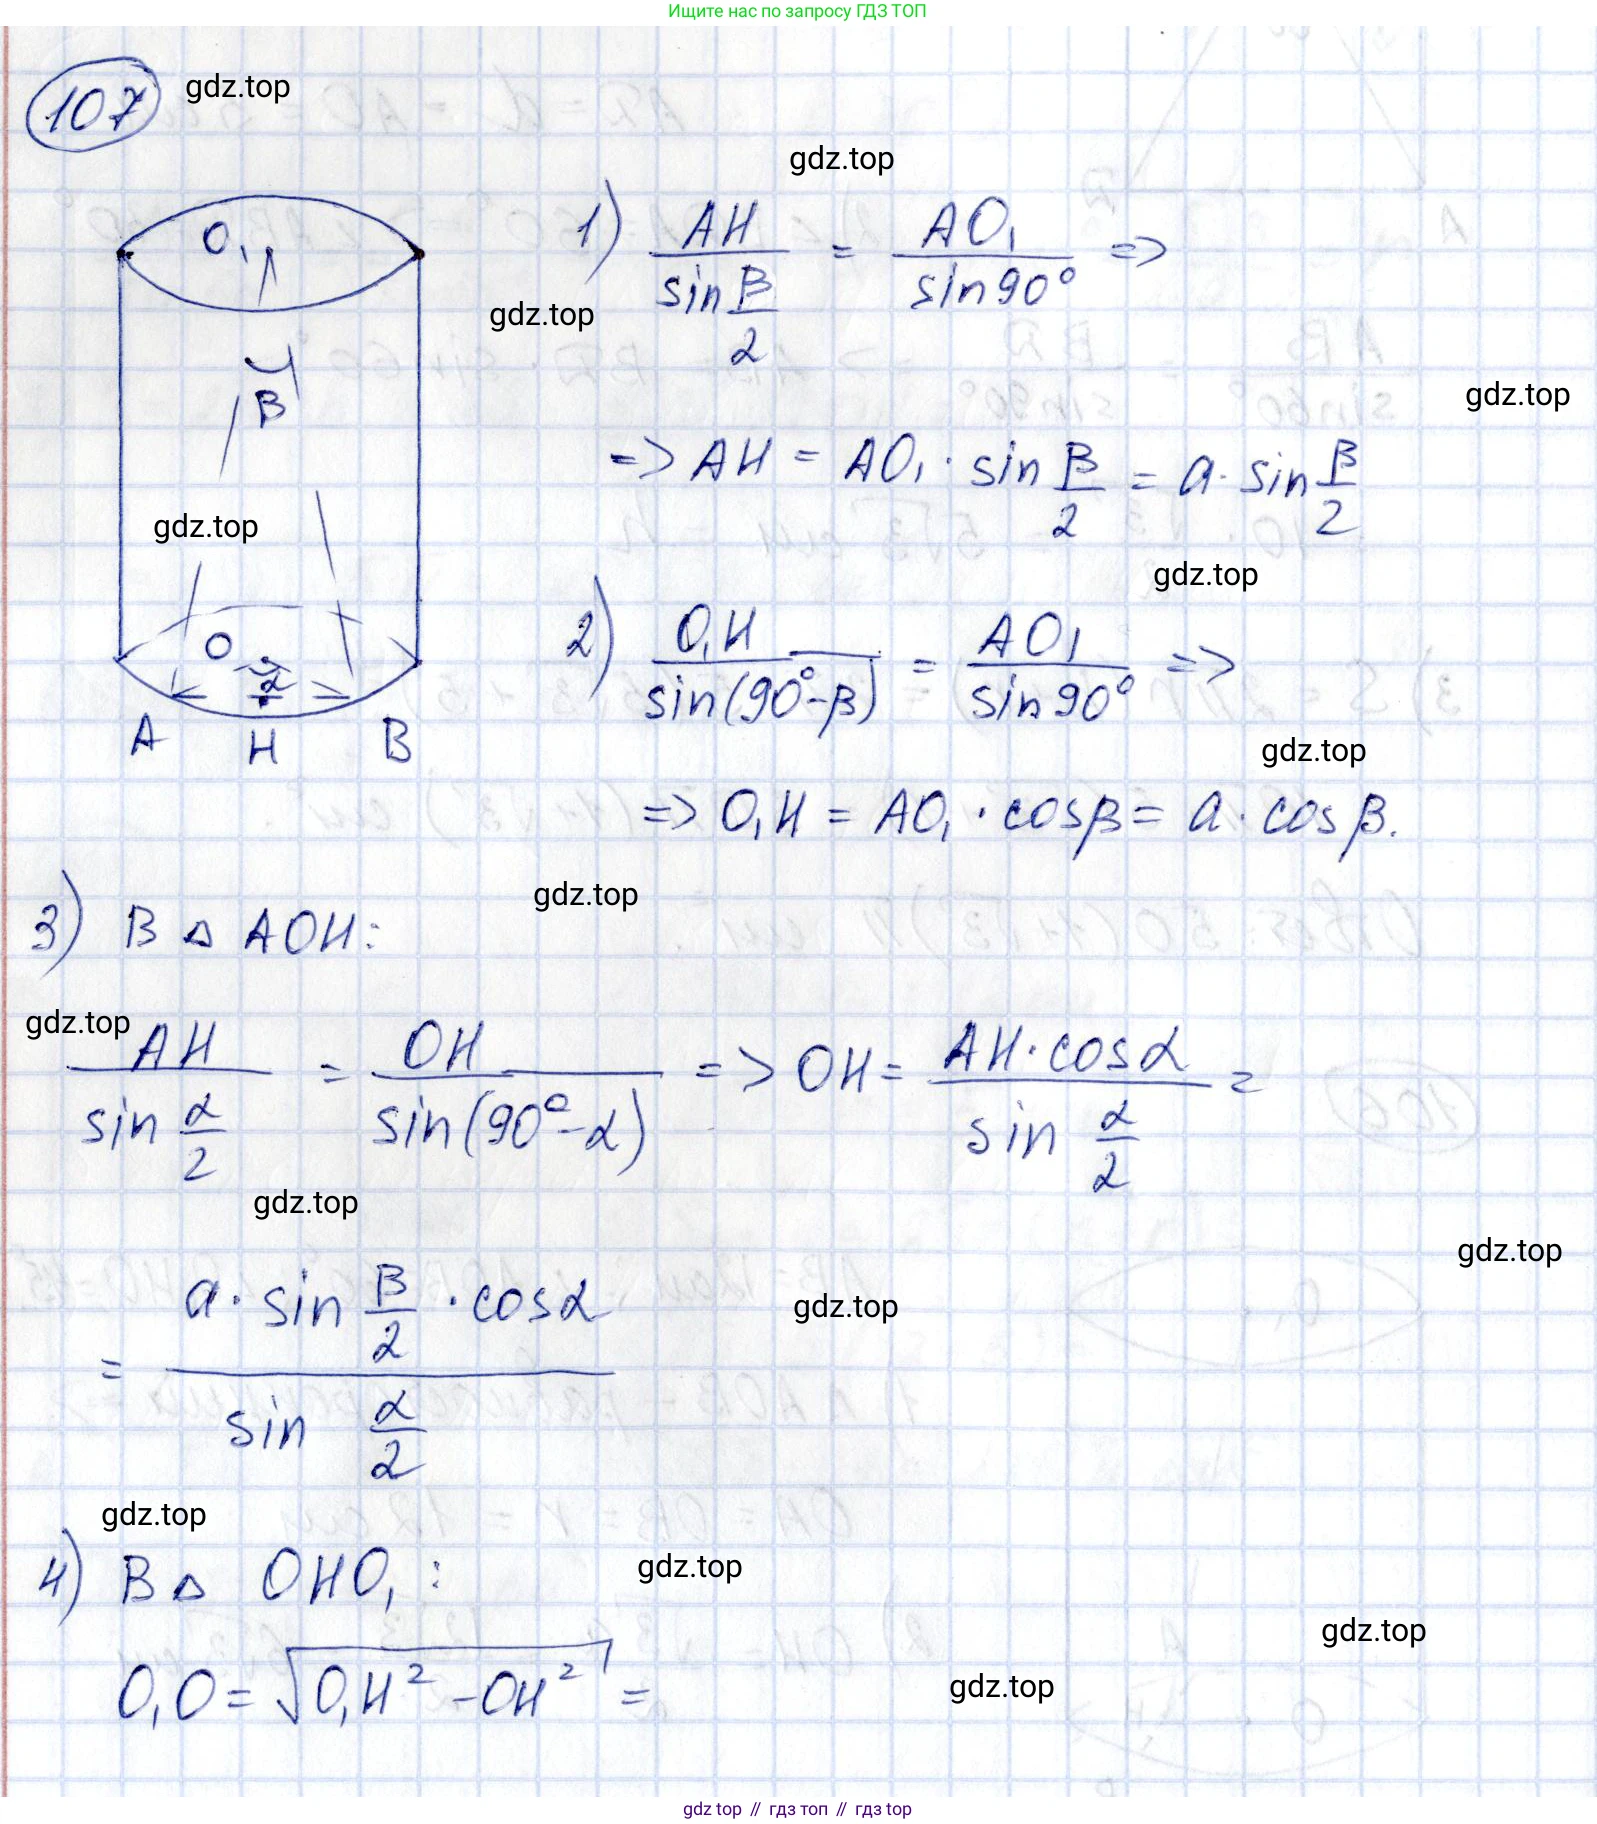 Ищите нас по запросу ГДЗ ТОП
107
gdz.top
gdz.top
O₁
1) AH / sin β/2 = AO₁ / sin 90° =>
gdz.top
β
gdz.top
=> AH = AO₁ · sin β/2 = a · sin β/2
gdz.top
gdz.top
O
α
A H B
2) O₁H / sin(90° - β) = AO₁ / sin 90° =>
gdz.top
=> O₁H = AO₁ · cos β = a · cos β.
gdz.top
3) В △ AOH:
gdz.top
AH / sin α/2 = OH / sin(90° - α) => OH = AH · cos α / sin α/2 =
gdz.top
gdz.top
= a · sin β/2 · cos α / sin α/2
gdz.top
gdz.top
4) В △ OHO₁:
gdz.top
gdz.top
O₁O = √(O₁H² - OH²) =
gdz.top
gdz top // гдз топ // гдз top